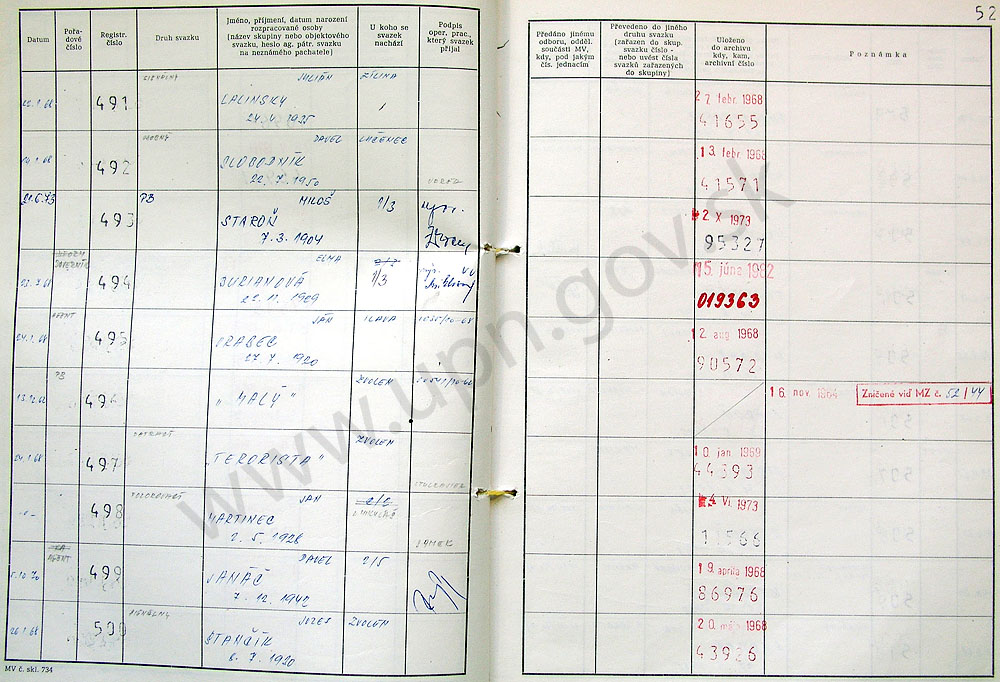 52
Datum
Pořadové číslo
Registr. číslo
Druh svazku
Jméno, příjmení, datum narození
rozpracované osoby
(název skupiny nebo objektového
svazku, heslo ag. pátr. svazku
na neznámého pachatele)
U koho se
svazek
nachází
Podpis
oper. prac.,
který svazek
přijal
Předáno jinému
odboru, odděl.
součásti MV,
kdy, pod jakým
čís. jednacím
Převedeno do jiného
druhu svazku
(zařazen do skup.
svazku číslo -
nebo uvést čísla
svazků zařazených
do skupiny)
Uloženo
do archivu
kdy, kam,
archivní číslo
Poznámka
491 LALINSKÝ JULIÁN ŽILINA
24. V. 1935
27 febr 1968
41655
492 SLOBODNÍK PAVEL LUČENEC
22. 7. 1950
13. febr 1968
41571
21.6.73 493 PB MILOŠ 1/3
STAROŇ
7. 3. 1904
2 X 1973
95327
494 ELNA
JURIANOVÁ 1/3
22. 11. 1929
15. júna 1982
019363
24.1.68 AGENT 495 JÁN ILAVA
VRABEC
27. V. 1920
12. aug 1968
90572
PB ZVOLEN
„MALÝ"
16. nov. 1964 Zničené viď MZ č. 52/44
24.1.68 497 ZVOLEN
„TERORISTA"
10. jan 1969
44393
498 JÁN
MARTINEC
2. 5. 1928
4 VI 1973
11566
5.10.70 AGENT 499 PAVEL 2/5
VANÁČ
7. 12. 1942
19. apríla 1968
86976
26.1.68 500 JOZEF ZVOLEN
STANČÍK
8. 7. 1920
20. mája 1968
43926
MV č. skl. 734
www.upn.gov.sk